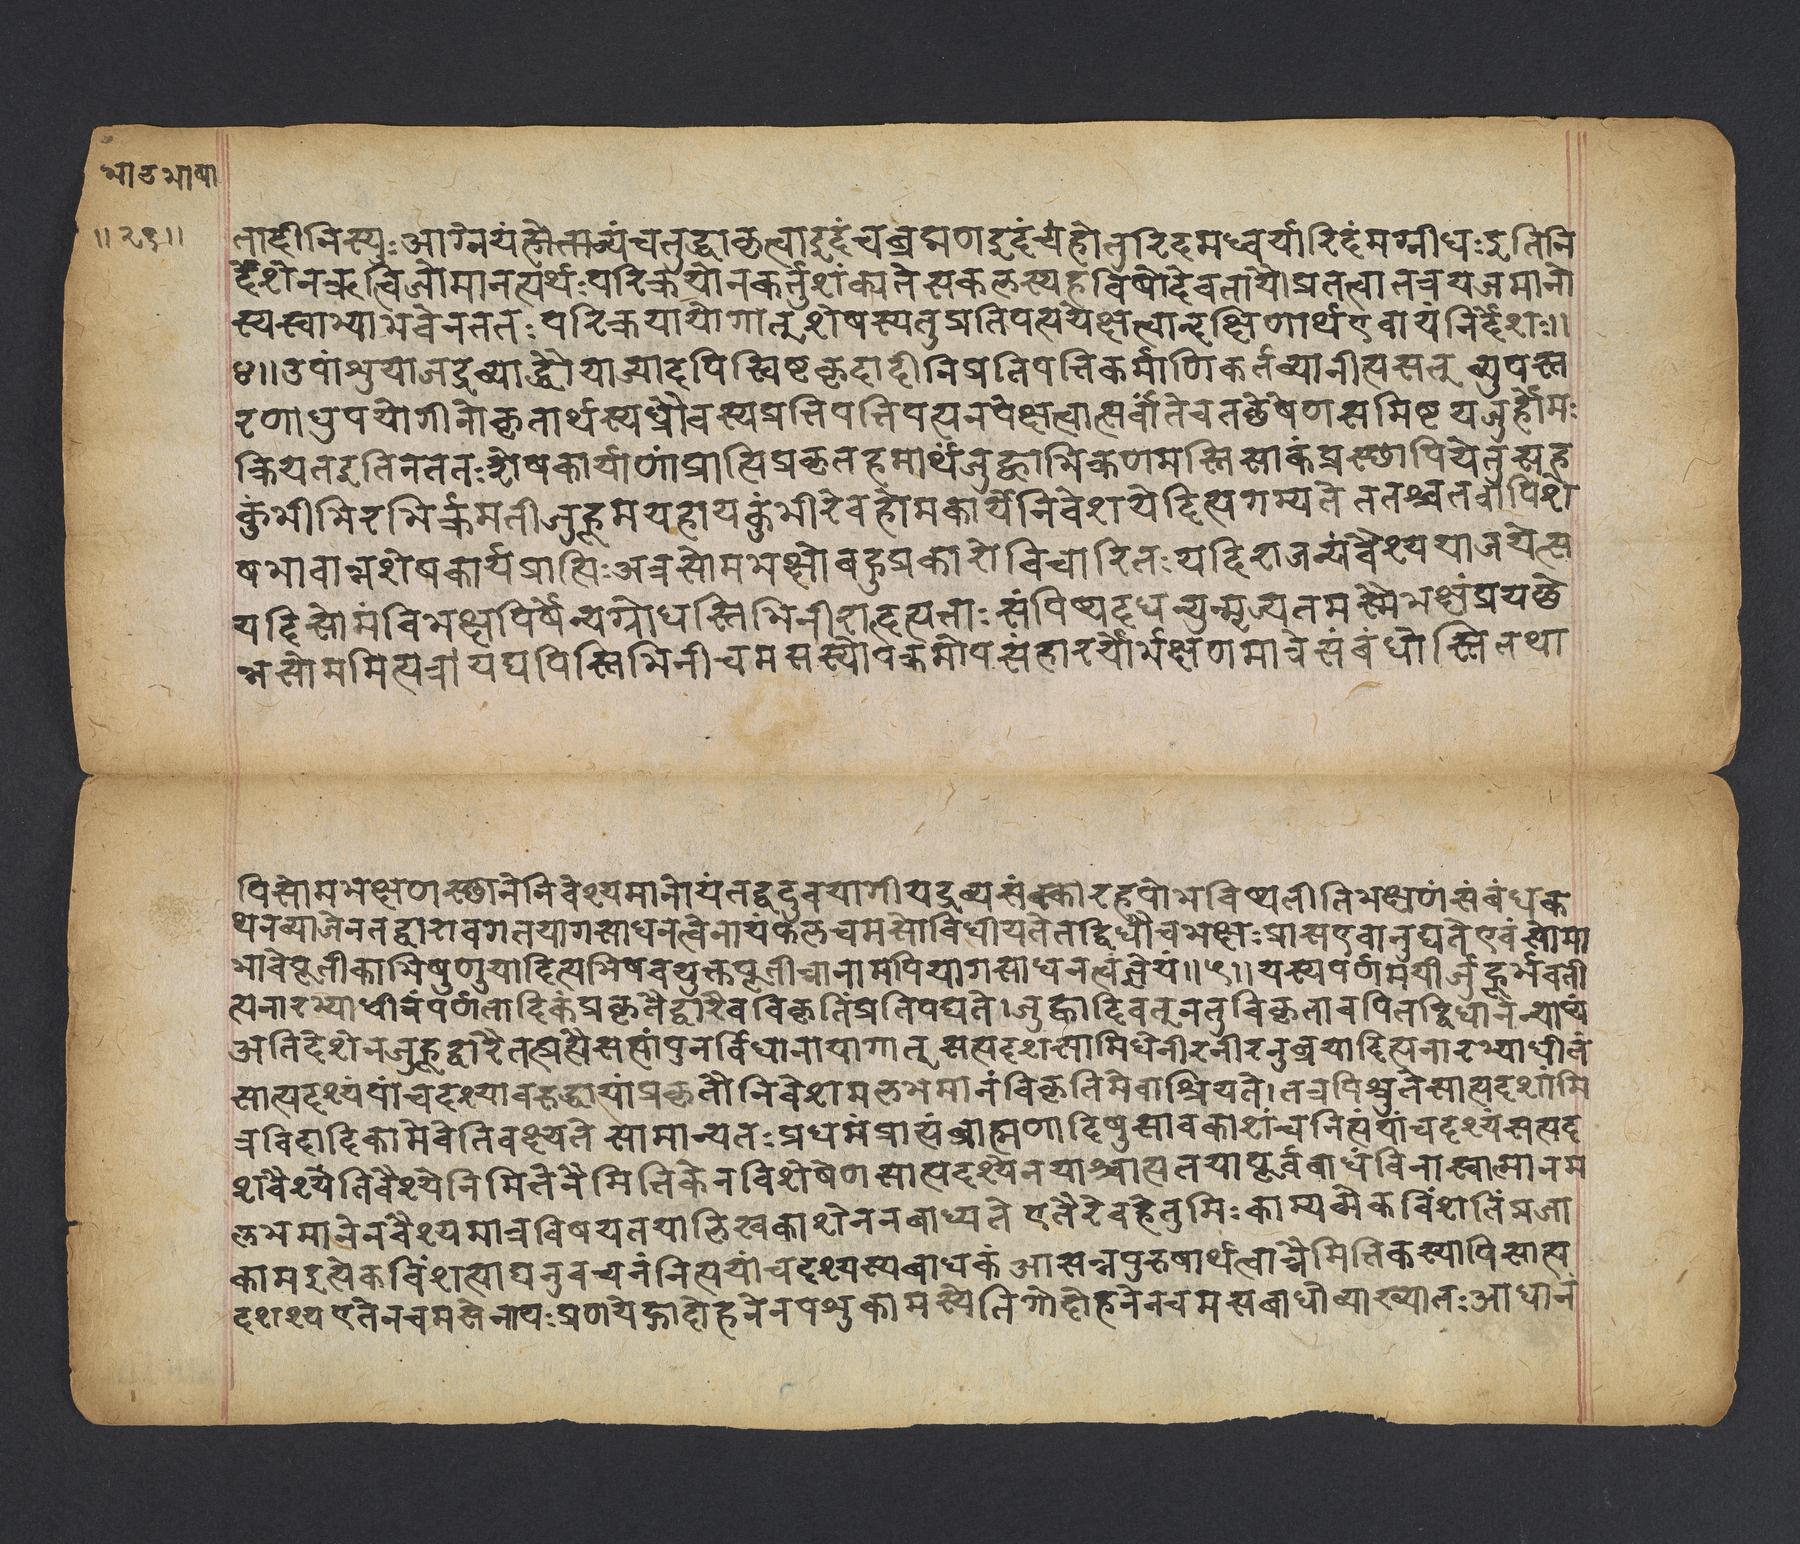 भाठभाषा
॥२९॥
तादीनिस्युः आग्नेयंहोतव्यंचतुर्द्धाकृत्वाइदंचब्रह्मणइदंचहोतुरिदमध्वर्योरिदंमग्नीधःइतिनि
र्देशेनऋत्विजोमानत्यर्थःपरिक्रयोनकर्तुंशंक्यतेसकलस्यहविषोदेवतायैप्रतत्वातत्रयजमानो
स्यस्वाभ्याभवेनततःपरिक्रयायोगात् शेषस्यतुप्रतिपत्यपेक्षत्वात्दक्षिणार्थएवायंनिर्देशः॥
४॥उपांशुयाजद्रव्याद्ध्रौवाज्यादपिस्विष्टकृदादीनिप्रतिपत्तिकर्माणिकर्तव्यानीत्यसत् व्युपस्त
रणाद्युपयोगीनोकृतार्थस्यध्रौवस्यप्रतिपत्तिपत्यनपेक्षत्वात्सर्वांतेचतच्छेषेणसमिष्टयजुर्होमः
क्रियतइतिनततःशेषकार्याणांप्राप्तिप्रकृतहमार्थंजुह्वाभिक्रणमस्तिसाकंप्रस्छापियेतुसह
कुंभीभिरभिक्रमतीजुहूमयहायकुंभीरेवहोमकार्येनिवेशयेदित्यगम्यते ततश्चतत्रापिशे
षभावान्नशेषकार्यप्राप्तिःअत्रसोमभक्षोबहुप्रकारोविचारितःयदिराजन्यंवैश्यंयाजयेत्स
यदिसोमंविभक्षयिषेन्यग्रोधस्तिभिनीराहृत्यताः संपिष्यदधन्युन्मृज्यतमस्मैभक्षंप्रयछे
न्नसोममित्यत्रा यद्यपिस्तिभिनीचमसस्योपक्रमोपसंहारयोर्भक्षणमात्रेसंबंधोस्तितथा
पिसोमभक्षणस्छानेनिवेश्यमानोयंतद्वदुवयागीयद्रव्यसंस्कारहृपोभविष्यतीतिभक्षणंसंबंधक
थनव्याजेनतद्वारावगतयागसाधनत्वेनायंफलचमसोविधीयतेतद्विधौचभक्षःप्राप्तएवानुद्यते एवंसोमा
भावेपूतीकाभिषुणुयादित्यभिषवयुक्तपूतीचानामपियागसाधनत्वंज्ञेयं॥५॥यस्यपर्णमयीर्जुहूर्भवती
त्यनारभ्याधीनंपर्णतादिकंप्रकृतैद्वारैवविकृतिंप्रतिपद्यते।जुह्वादिवत्नतुविकृतावपितद्विधानंन्याय्यं
अतिदेशेनजुहूद्वारैतत्प्राप्तैसत्तांपुनर्विधानायोगात् सप्तदशसामिधेनीरनीरनुब्रूयादित्यनारभ्याधीतं
साप्तदश्यंपांचदश्यावरुद्धायांप्रकृतौनिवेशामलभमानंविकृतिमेवाश्रियते।तत्रपिश्रुतेसाप्तदशांमि
त्रविंदादिकामेवेतिवक्ष्यते सामान्यतःप्रथमंप्राप्तंब्राह्मणादिषुसावकाशंचनित्संयांचदश्यंसप्तद
शवैश्येतिवैश्येनिमितेनैमितिकेनविशेषेणसाप्तदश्येनयाश्चात्यतयापूर्वबाधंविनास्वात्मानम
लभमानेनवैश्यमात्रविषयतयालिखकाशेननबाध्यते एतैरेवहेतुमिःकाम्यमेकविंशतिंप्रजा
कामइत्येकविंशत्याद्यनुवचनंनित्ययांचदश्यस्यबाधकं आसन्नपुरुषार्थत्वान्नैमितिकस्यापिसाप्त
दशश्य एतेनचमसेनापःप्रणयेद्गोदोहनेनपशुकामस्येतिगोदोहनेनचमसबाधोव्याख्यातःआधानं